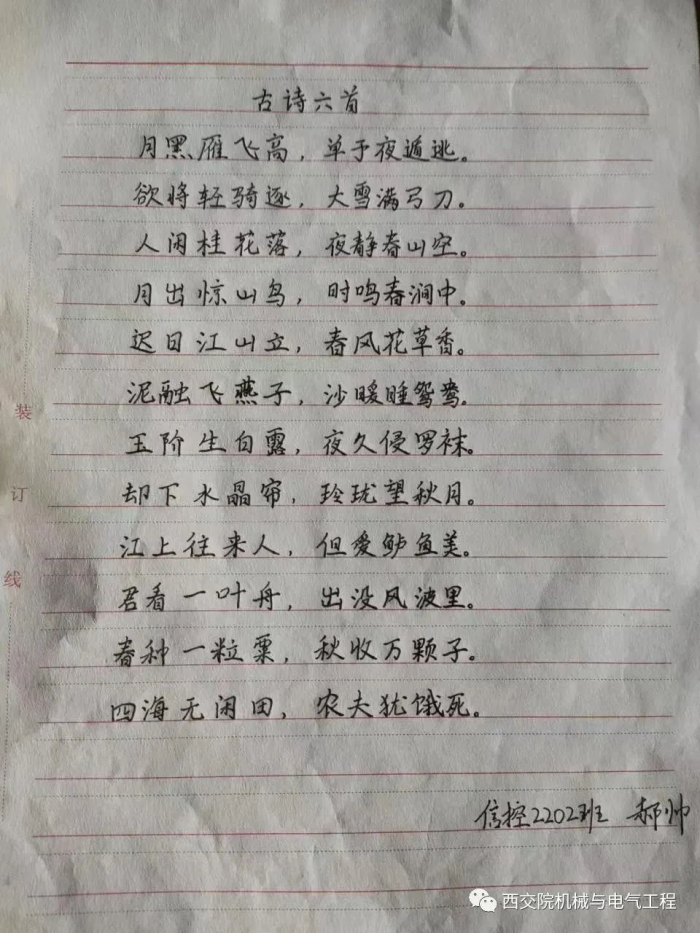 古诗六首
月黑雁飞高，单于夜遁逃。
欲将轻骑逐，大雪满弓刀。
人闲桂花落，夜静春山空。
月出惊山鸟，时鸣春涧中。
迟日江山立，春风花草香。
泥融飞燕子，沙暖睡鸳鸯。
玉阶生白露，夜久侵罗袜。
却下水晶帘，玲珑望秋月。
江上往来人，但爱鲈鱼美。
君看一叶舟，出没风波里。
春种一粒粟，秋收万颗子。
四海无闲田，农夫犹饿死。
装
订
线
信控2202班 郝帅
西交院机械与电气工程